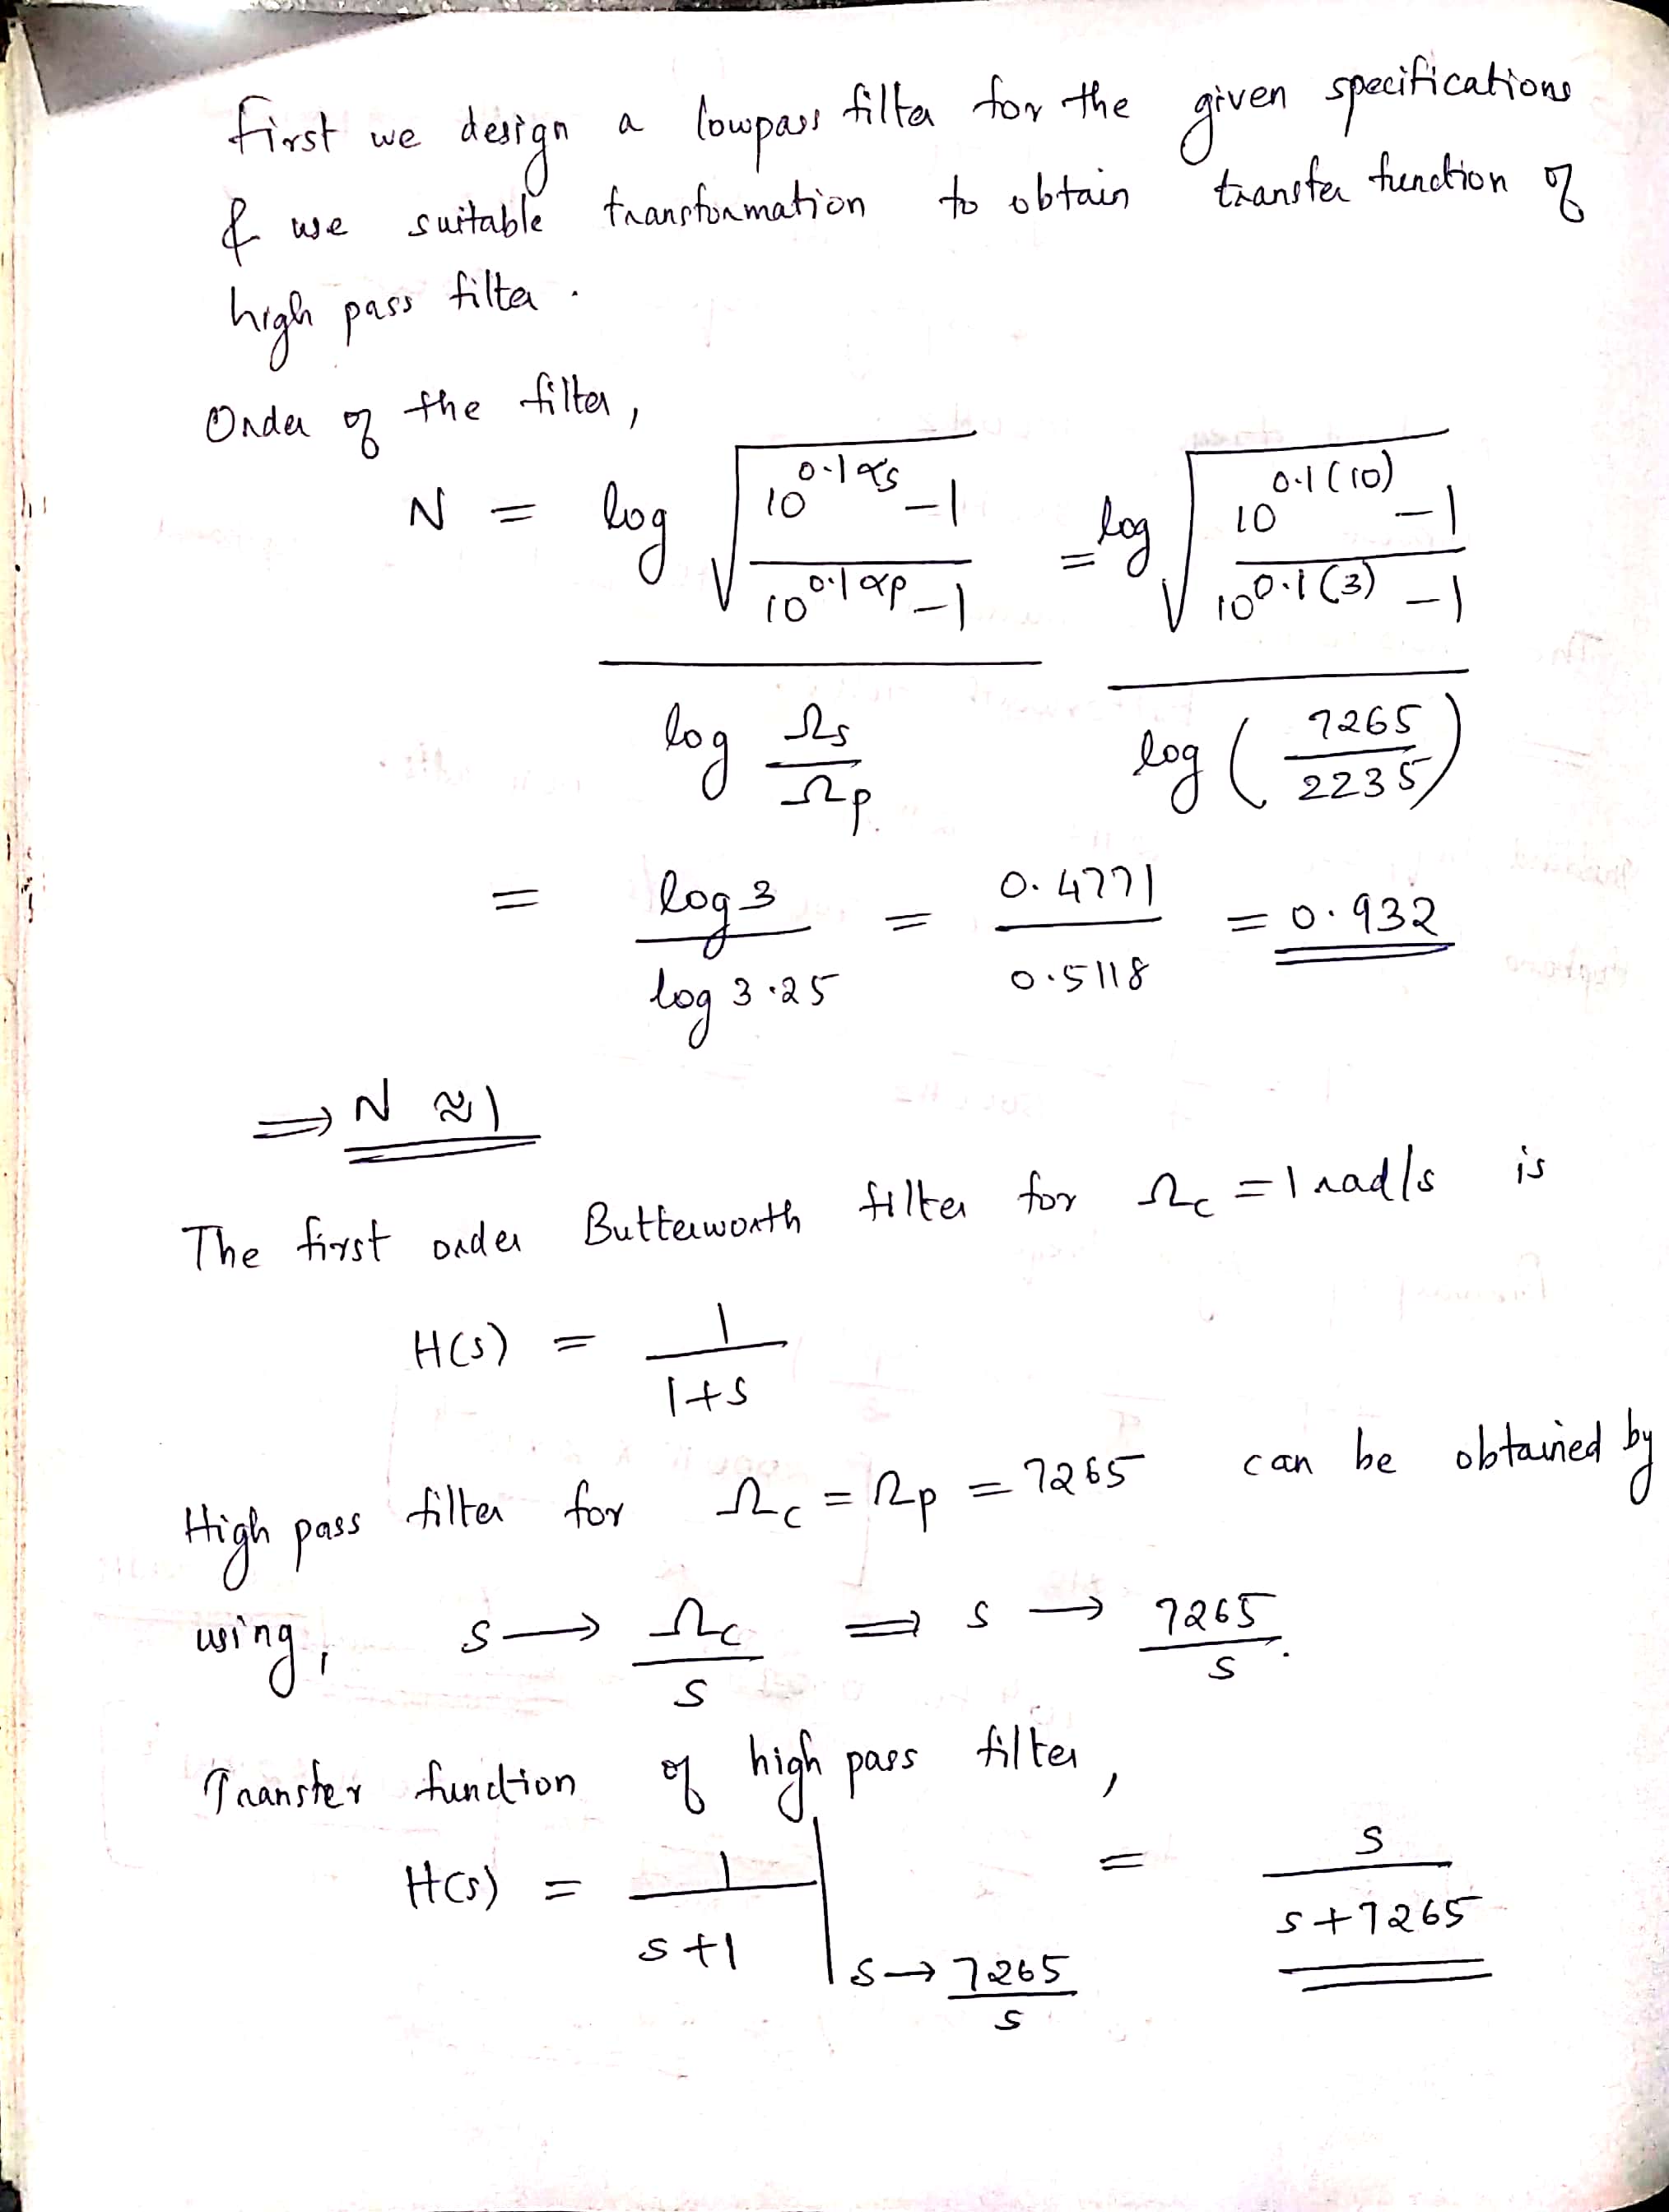 First we design a lowpass filter for the given specifications
& use suitable transformation to obtain transfer function of
high pass filter .
Order of the filter,
N = log √((10^(0.1αs) −1)/(10^(0.1αp) −1)) / log (Ωs/Ωp) = log √((10^(0.1(10)) −1)/(10^(0.1(3)) −1)) / log (7265/2235)
= log 3 / log 3.25 = 0.4771 / 0.5118 = 0.932
⟹ N ≈ 1
The first order Butterworth filter for Ωc = 1 rad/s is
H(s) = 1/(1+s)
High pass filter for Ωc = Ωp = 7265 can be obtained by
using, s → Ωc/s ⟹ s → 7265/s .
Transfer function of high pass filter,
H(s) = 1/(s+1) | s→7265/s = s/(s+7265)